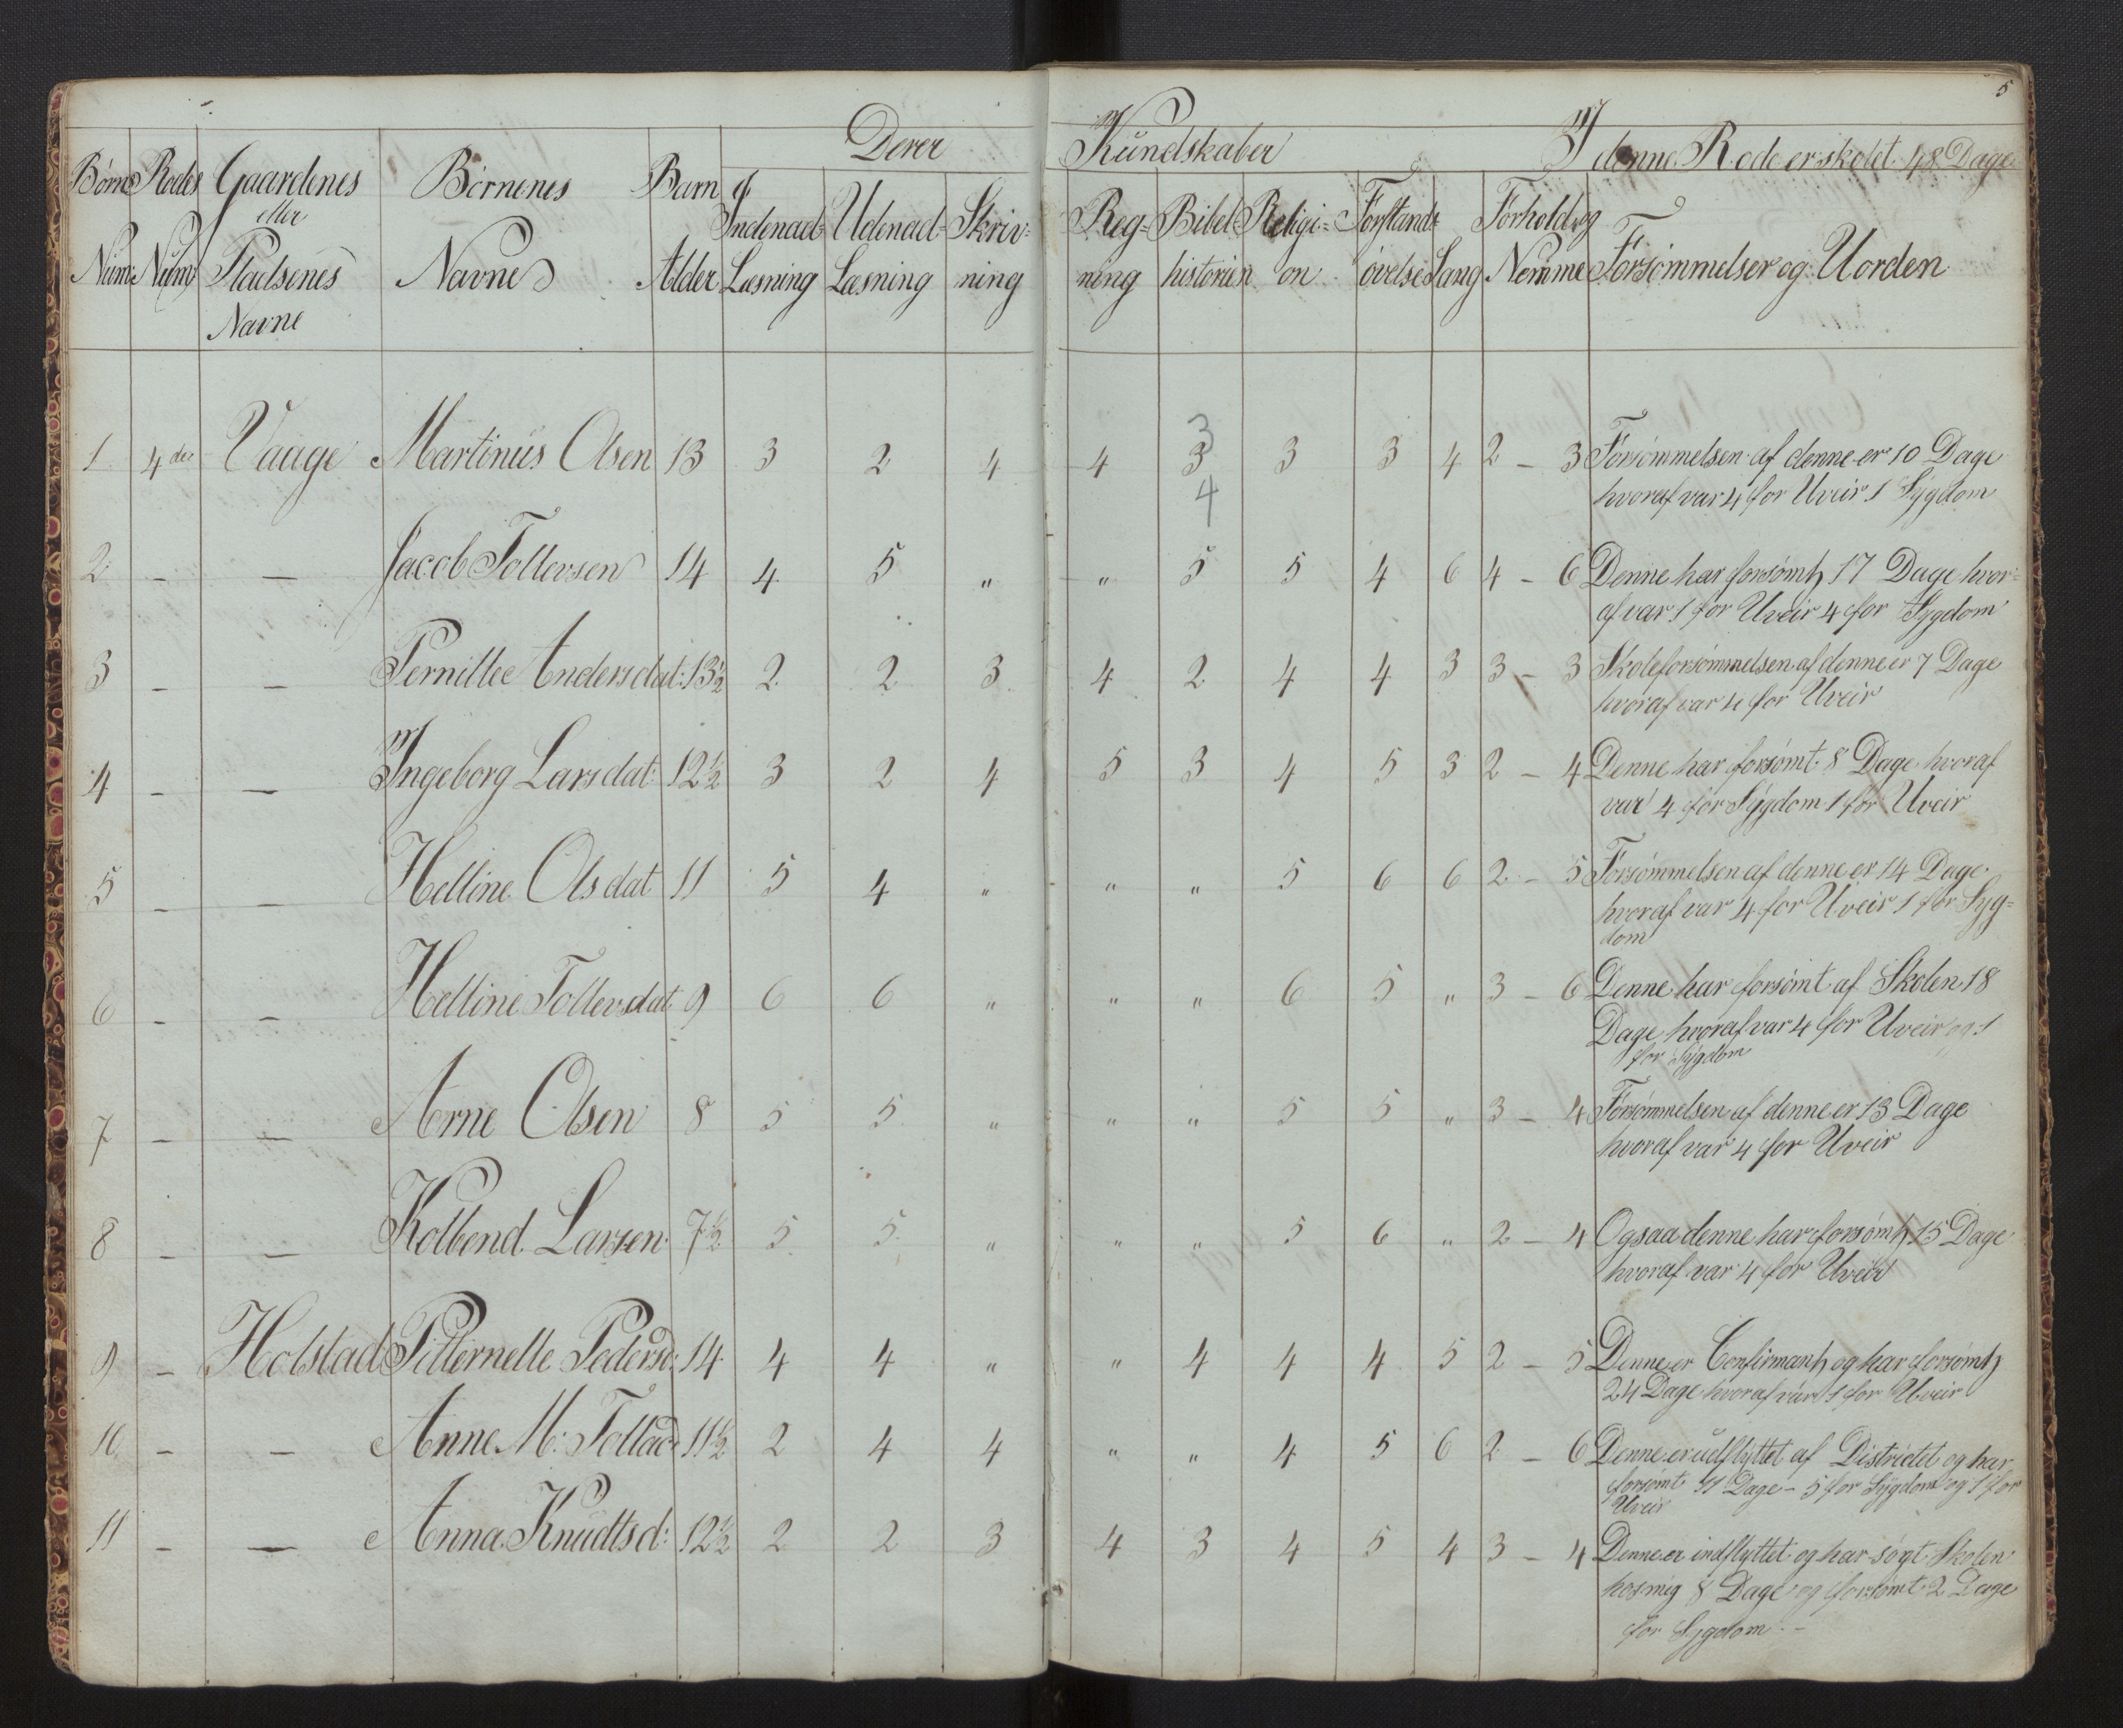 5
Derer Kundskaber I denne Rode er skolet 48 Dage
Børne Num: Rodes Num: Gaardenes eller Pladsenes Navne Børnenes Navne Barn Alder Indenad- Læsning Udenad- Læsning Skriv- ning Reg- ning Bibel historien Religi- on Forstands øvelse Sang Forhold og Nemme Forsømmelser og Uorden
3
1 4de Vaage Martinus Olsen 13 3 2 4 4 3 3 3 4 2 – 3 Forsømmelsen af denne er 10 Dage
hvoraf var 4 for Uveir 1 Sygdom
4
2 – – Jacob Tollevsen 14 4 5 " " 5 5 4 6 4 – 6 Denne har forsømt 17 Dage hvor-
af var 1 for Uveir 4 for Sygdom
3 – – Pernille Andersdat: 13½ 2 2 3 4 2 4 4 3 3 – 3 Skoleforsømmelsen af denne er 7 Dage
hvoraf var 4 for Uveir
4 – – Ingeborg Larsdat: 12½ 3 2 4 5 3 4 5 3 2 – 4 Denne har forsømt 8 Dage hvoraf
var 4 for Sygdom 1 for Uveir
5 – – Helline Olsdat 11 5 4 " " " 5 6 6 2 – 5 Forsømmelsen af denne er 14 Dage
hvoraf var 4 for Uveir 1 for Syg-
dom
6 – – Helline Tollevsdat 9 6 6 " " " 6 5 " 3 – 6 Denne har forsømt af Skolen 18
Dage hvoraf var 4 for Uveir og 1
for Sygdom
7 – – Arne Olsen 8 5 5 " " " 5 5 " 3 – 4 Forsømmelsen af denne er 13 Dage
hvoraf var 4 for Uveir
8 – – Kolbend Larsen 7½ 5 5 " " " 5 6 " 2 – 4 Ogsaa denne har forsømt 15 Dage
hvoraf var 4 for Uveir
9 – Holstad Pitternelle Pedersd: 14 4 4 " " 4 4 4 5 2 – 5 Denne er Confirmant og har forsømt
24 Dage hvoraf var 1 for Uveir
10 – – Anne M: Tollad: 11½ 2 4 4 " " 4 5 6 2 – 6 Denne er udflyttet af Districtet og har
forsømt 11 Dage – 5 for Sygdom og 1 for
Uveir
11 – – Anna Knudtsd: 12½ 2 2 3 4 3 4 5 4 3 – 4 Denne er indflyttet og har søgt Skolen
hos mig 8 Dage og forsømt 2 Dage
for Sygdom –